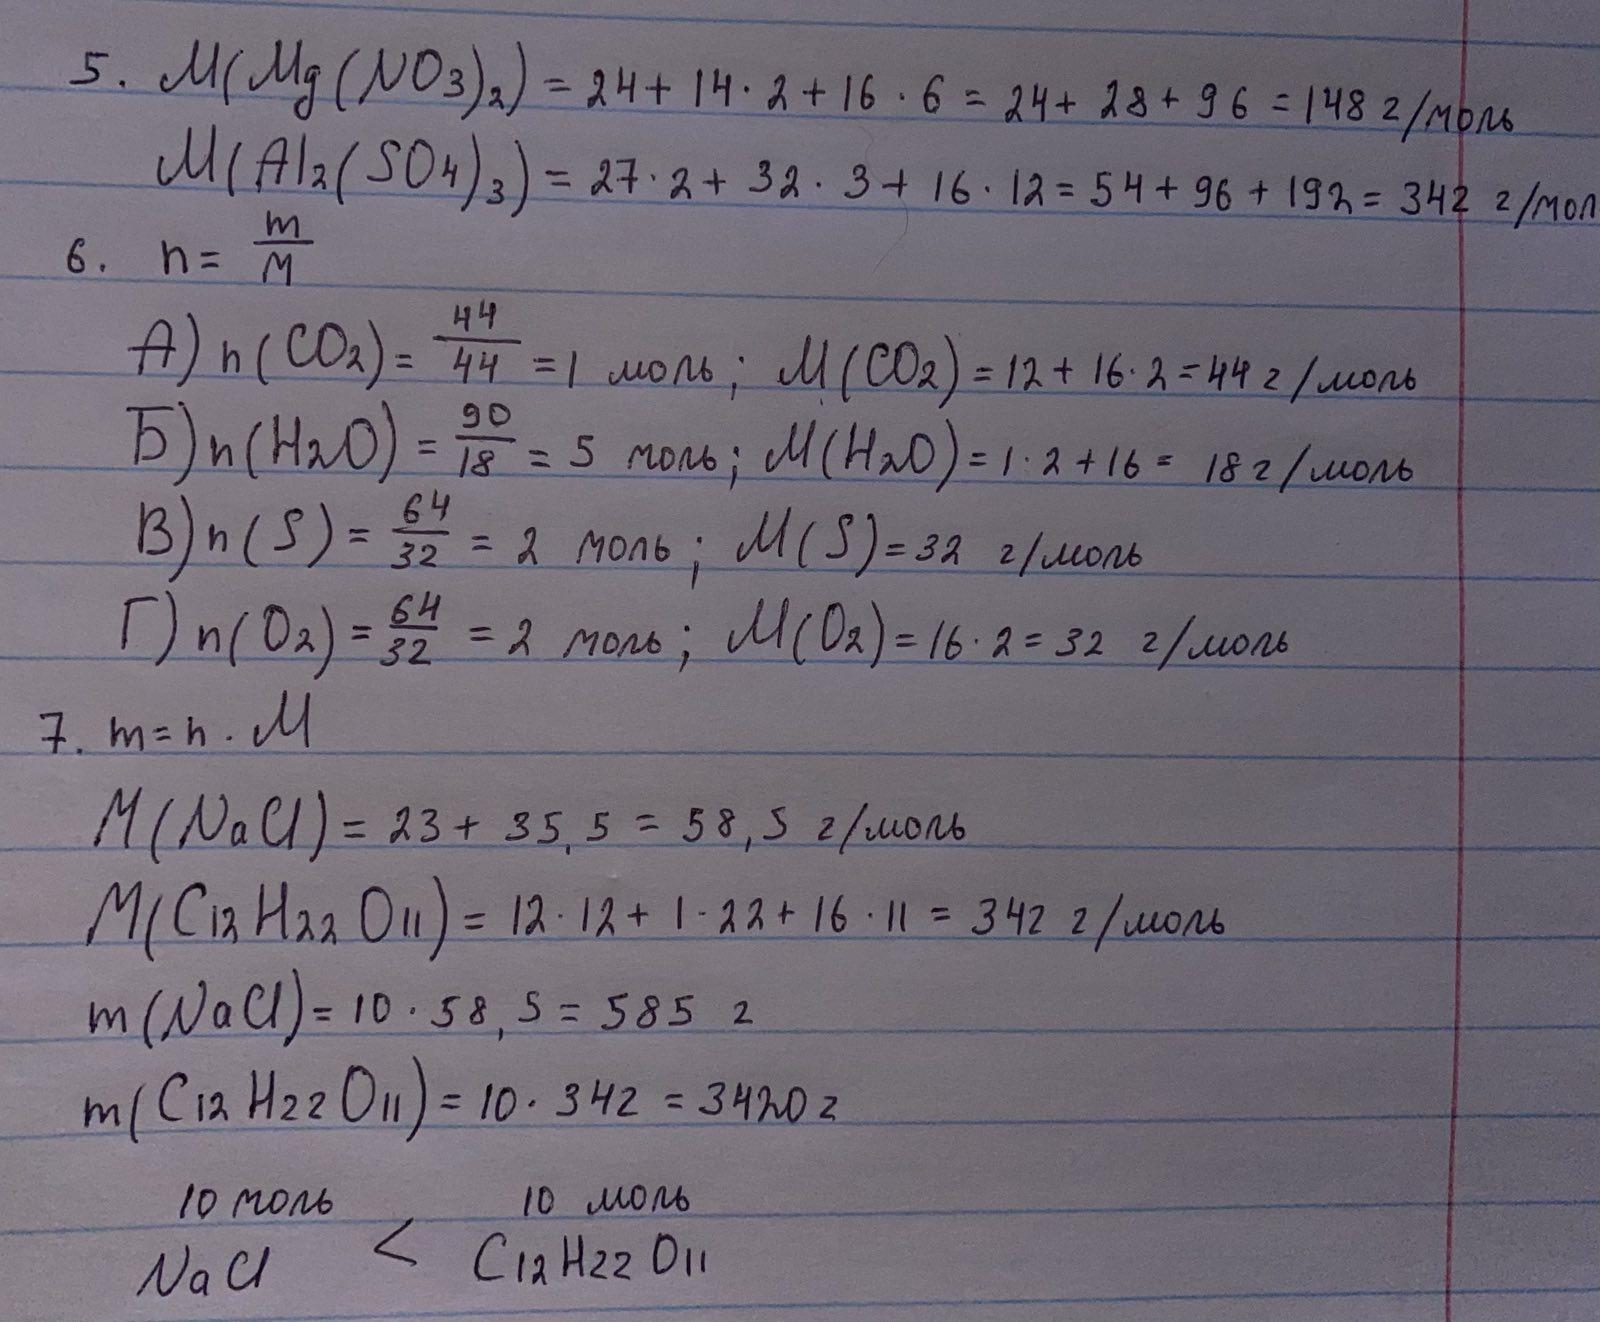 5. M(Mg(NO3)2) = 24 + 14 · 2 + 16 · 6 = 24 + 28 + 96 = 148 г/моль
M(Al2(SO4)3) = 27 · 2 + 32 · 3 + 16 · 12 = 54 + 96 + 192 = 342 г/мол
6. n = m/M
А) n(CO2) = 44/44 = 1 моль; M(CO2) = 12 + 16 · 2 = 44 г/моль
Б) n(H2O) = 90/18 = 5 моль; M(H2O) = 1 · 2 + 16 = 18 г/моль
В) n(S) = 64/32 = 2 моль; M(S) = 32 г/моль
Г) n(O2) = 64/32 = 2 моль; M(O2) = 16 · 2 = 32 г/моль
7. m = n · M
M(NaCl) = 23 + 35,5 = 58,5 г/моль
M(C12H22O11) = 12 · 12 + 1 · 22 + 16 · 11 = 342 г/моль
m(NaCl) = 10 · 58,5 = 585 г
m(C12H22O11) = 10 · 342 = 3420 г
10 моль 10 моль
NaCl < C12H22O11